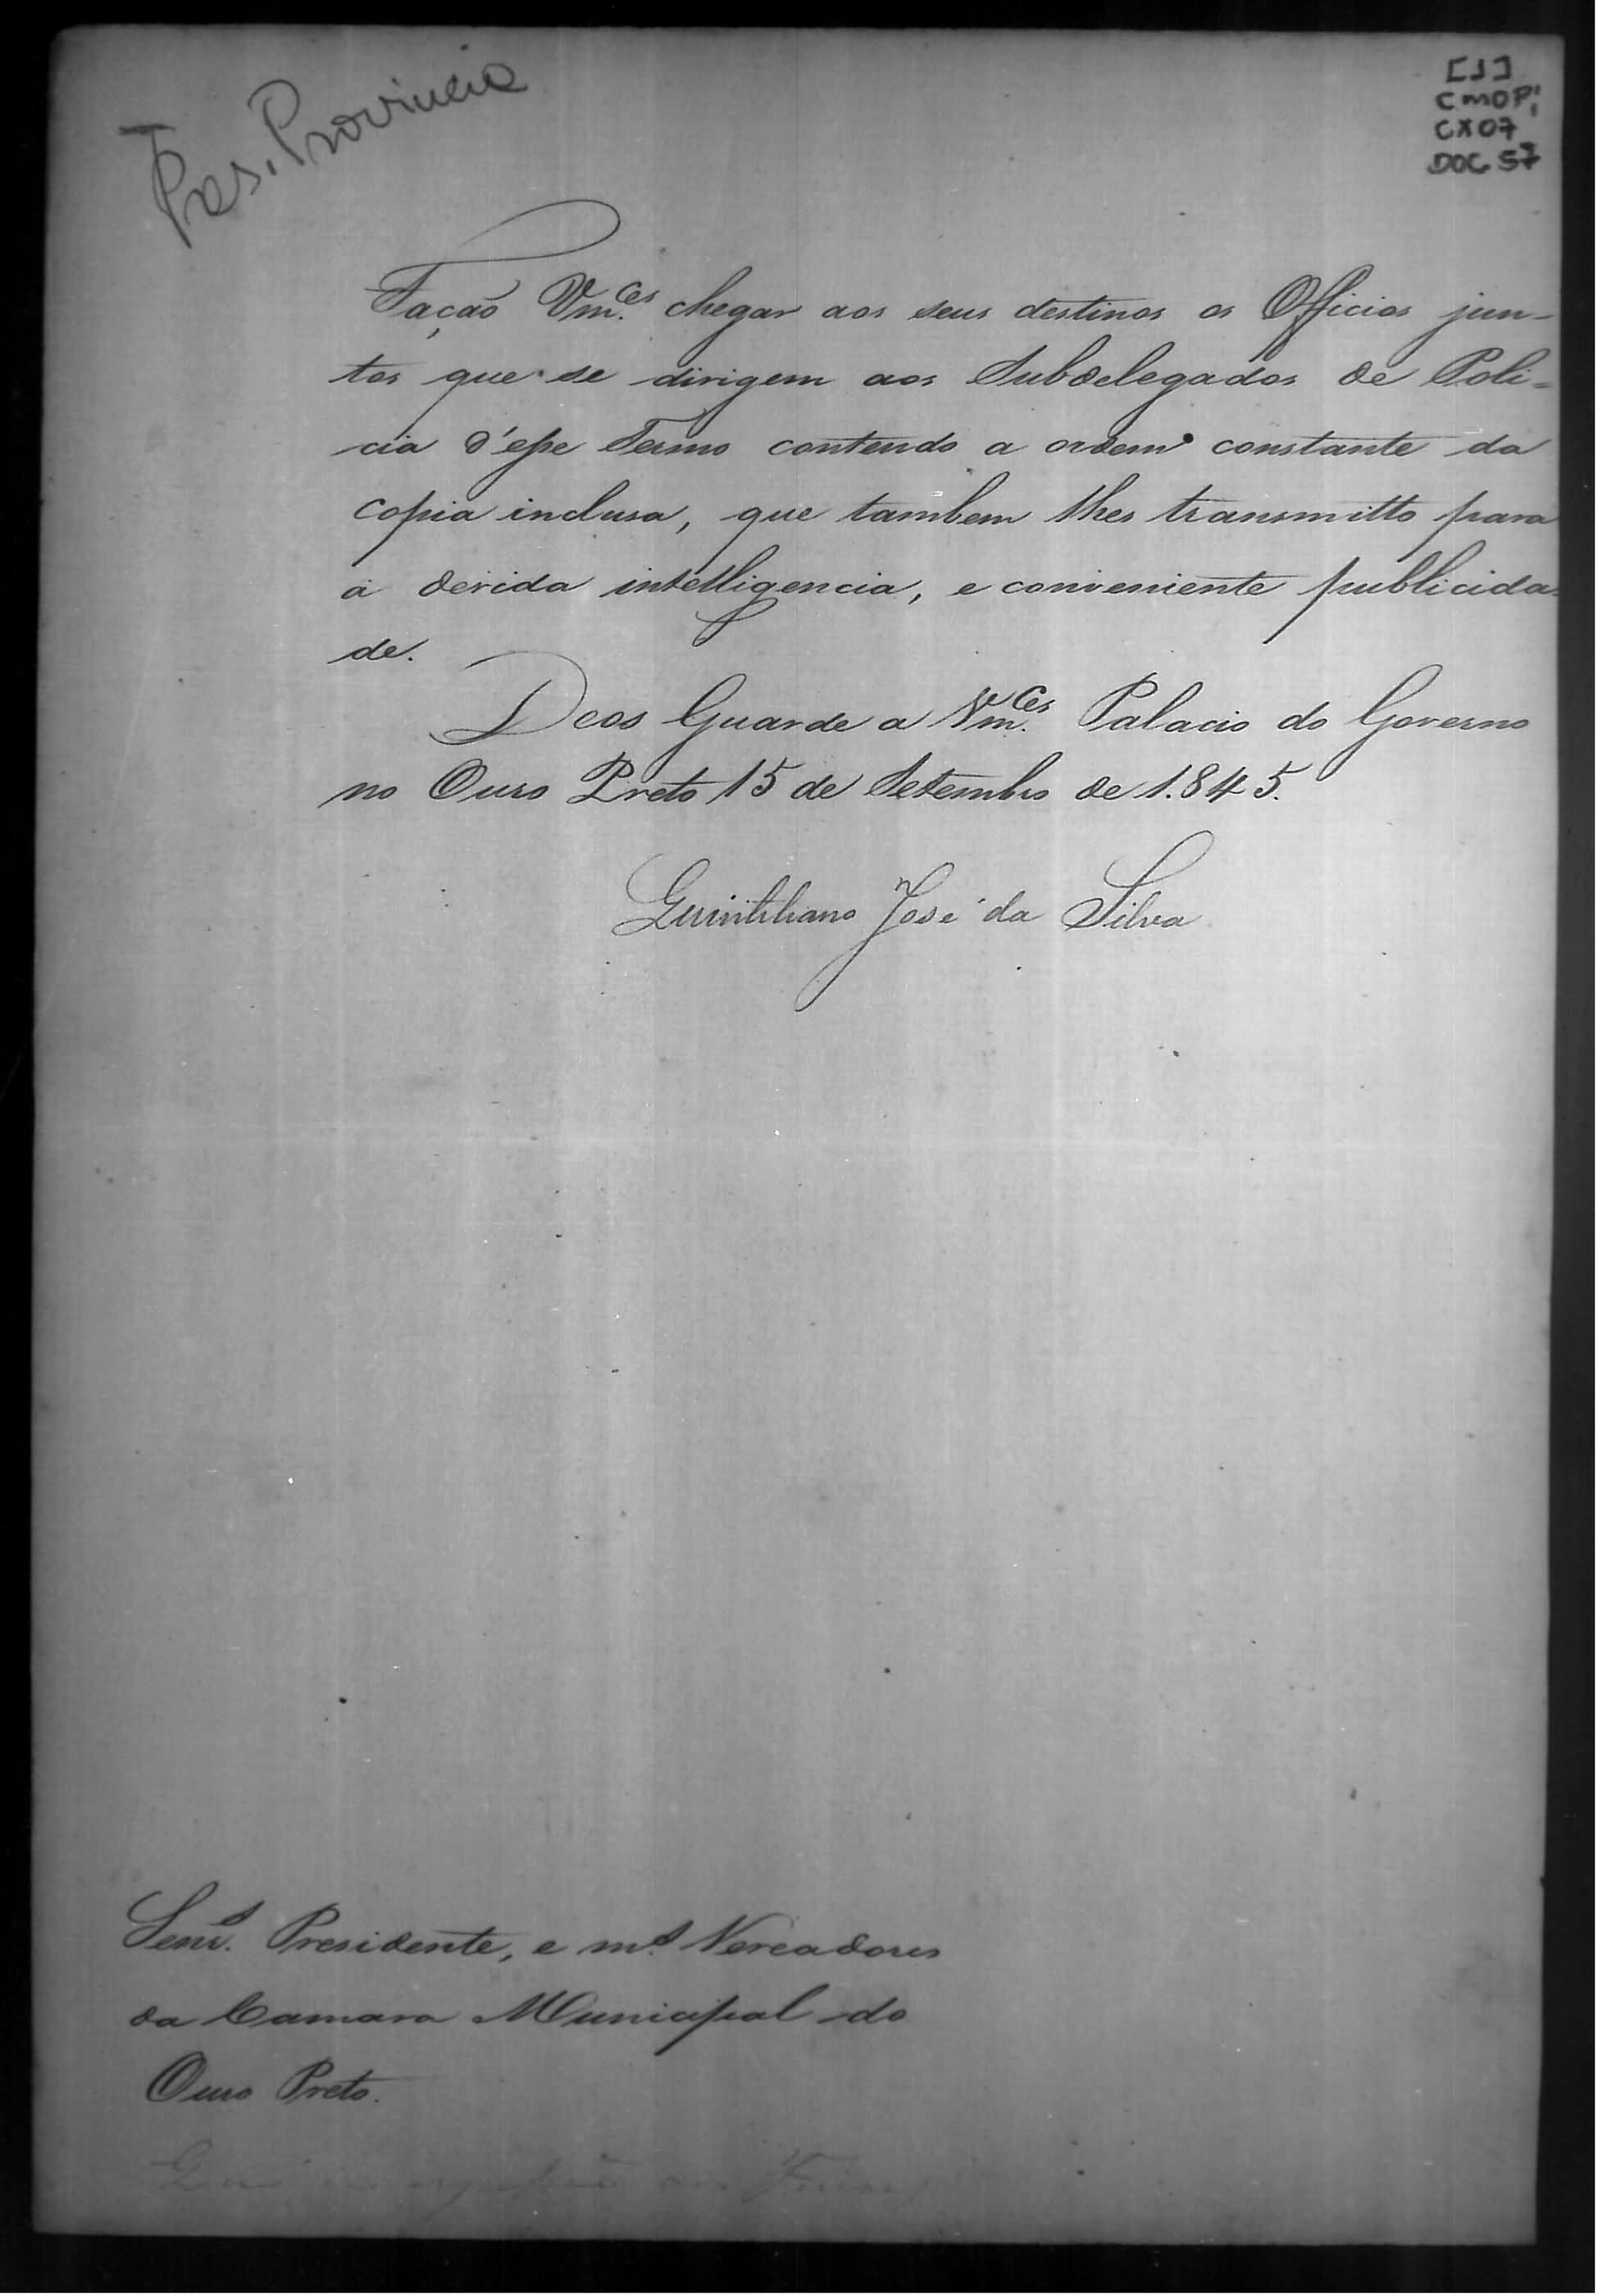 Pres. Provincia
[1]
CMOP;
CX07
DOC 57
Fação Vm.ces chegar aos seus destinos os Officios jun-
tos que se dirigem aos Subdelegados de Poli-
cia d'esse Termo contendo a ordem constante da
copia inclusa, que tambem lhes transmitto para
a devida intelligencia, e conveniente publicida-
de.
Deos Guarde a Vm.ces Palacio do Governo
no Ouro Preto 15 de Setembro de 1.845.
Quintiliano José da Silva
Senr.s Presidente, e m.s Vereadores
da Camara Municipal do
Ouro Preto.